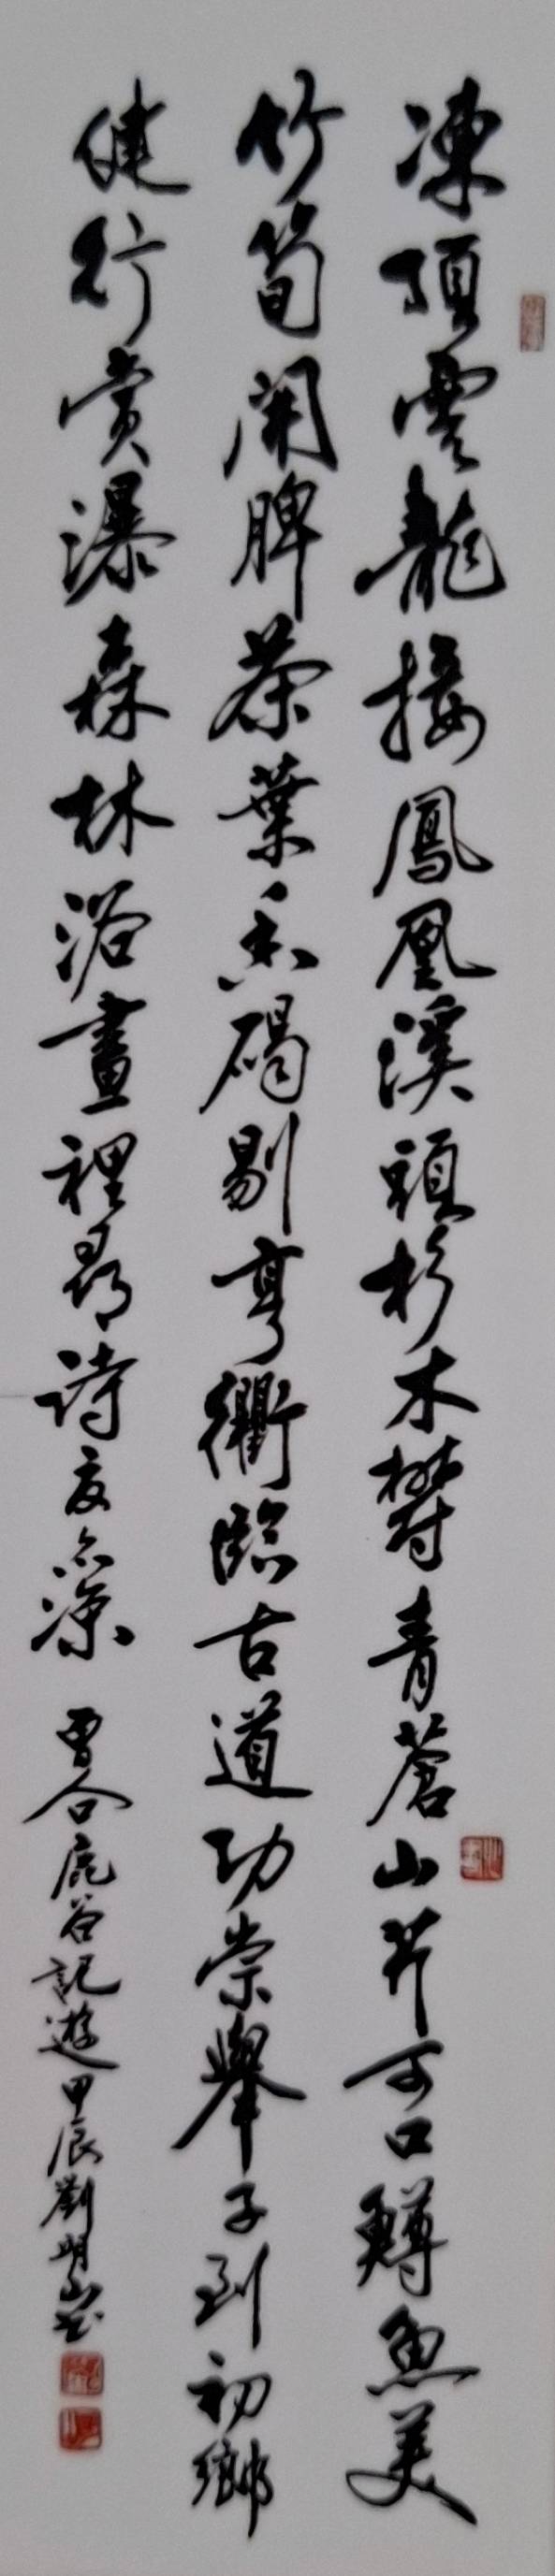 凍頂雲龍接鳳凰溪頭杉木鬱青蒼山芹可口鱒魚美
竹筍開脾茶葉香碣剔亨衢臨古道功崇舉子到初鄉
健行賞瀑森林浴畫裡尋詩夏亦涼
曹合鹿谷記遊甲辰劉明